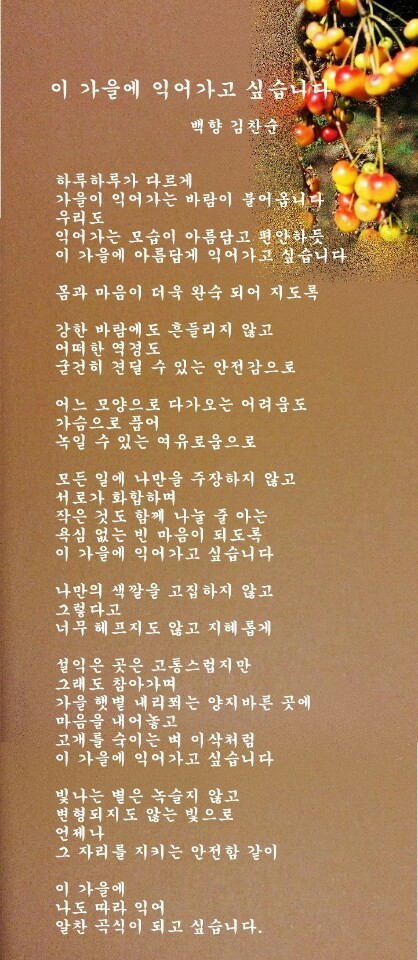 이 가을에 익어가고 싶습니다
백향 김찬순
하루하루가 다르게
가을이 익어가는 바람이 불어옵니다
우리도
익어가는 모습이 아름답고 편안하듯
이 가을에 아름답게 익어가고 싶습니다
몸과 마음이 더욱 완숙 되어 지도록
강한 바람에도 흔들리지 않고
어떠한 역경도
굳건히 견딜 수 있는 안전감으로
어느 모양으로 다가오는 어려움도
가슴으로 품어
녹일 수 있는 여유로움으로
모든 일에 나만을 주장하지 않고
서로가 화합하며
작은 것도 함께 나눌 줄 아는
욕심 없는 빈 마음이 되도록
이 가을에 익어가고 싶습니다
나만의 색깔을 고집하지 않고
그렇다고
너무 헤프지도 않고 지혜롭게
설익은 곳은 고통스럽지만
그래도 참아가며
가을 햇볕 내리쬐는 양지바른 곳에
마음을 내어놓고
고개를 숙이는 벼 이삭처럼
이 가을에 익어가고 싶습니다
빛나는 별은 녹슬지 않고
변형되지도 않는 빛으로
언제나
그 자리를 지키는 안전함 같이
이 가을에
나도 따라 익어
알찬 곡식이 되고 싶습니다.